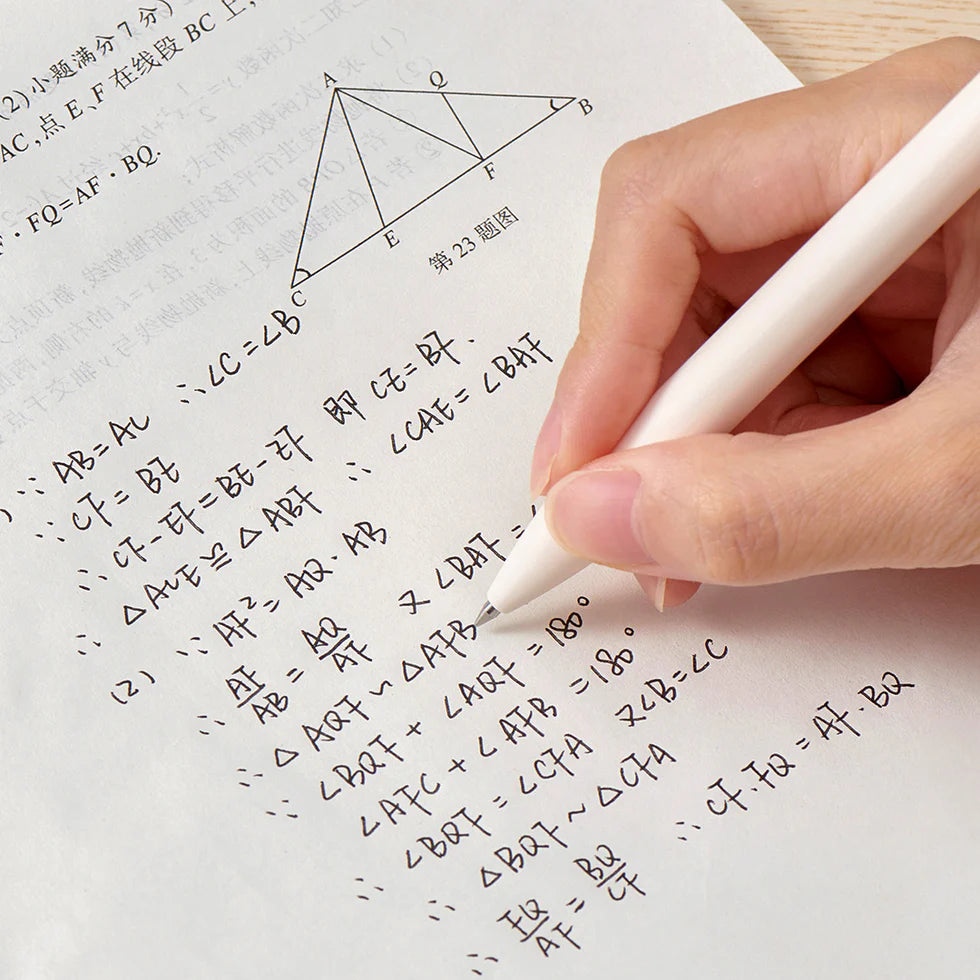 (2)小题满分7分)
AC,点E、F在线段BC上,
· FQ=AF · BQ.
A
Q
B
F
E
C
第23题图
∵ AB=AC ∴∠C=∠B
∵ CF=BE
∴ CF-EF=BE-EF 即 CE=BF.
∴ △ACE≌△ABF ∴ ∠CAE=∠BAF
(2) ∵ AF²=AQ·AB
∴ AF/AB=AQ/AF 又∠BAF=
∴ △AQF∽△AFB
∵ ∠BQF+∠AQF=180°
∠AFC+∠AFB=180°
∴ ∠BQF=∠CFA 又∠B=∠C
∴ △BQF~△CFA
∴ FQ/AF=BQ/CF ∴ CF·FQ=AF·BQ